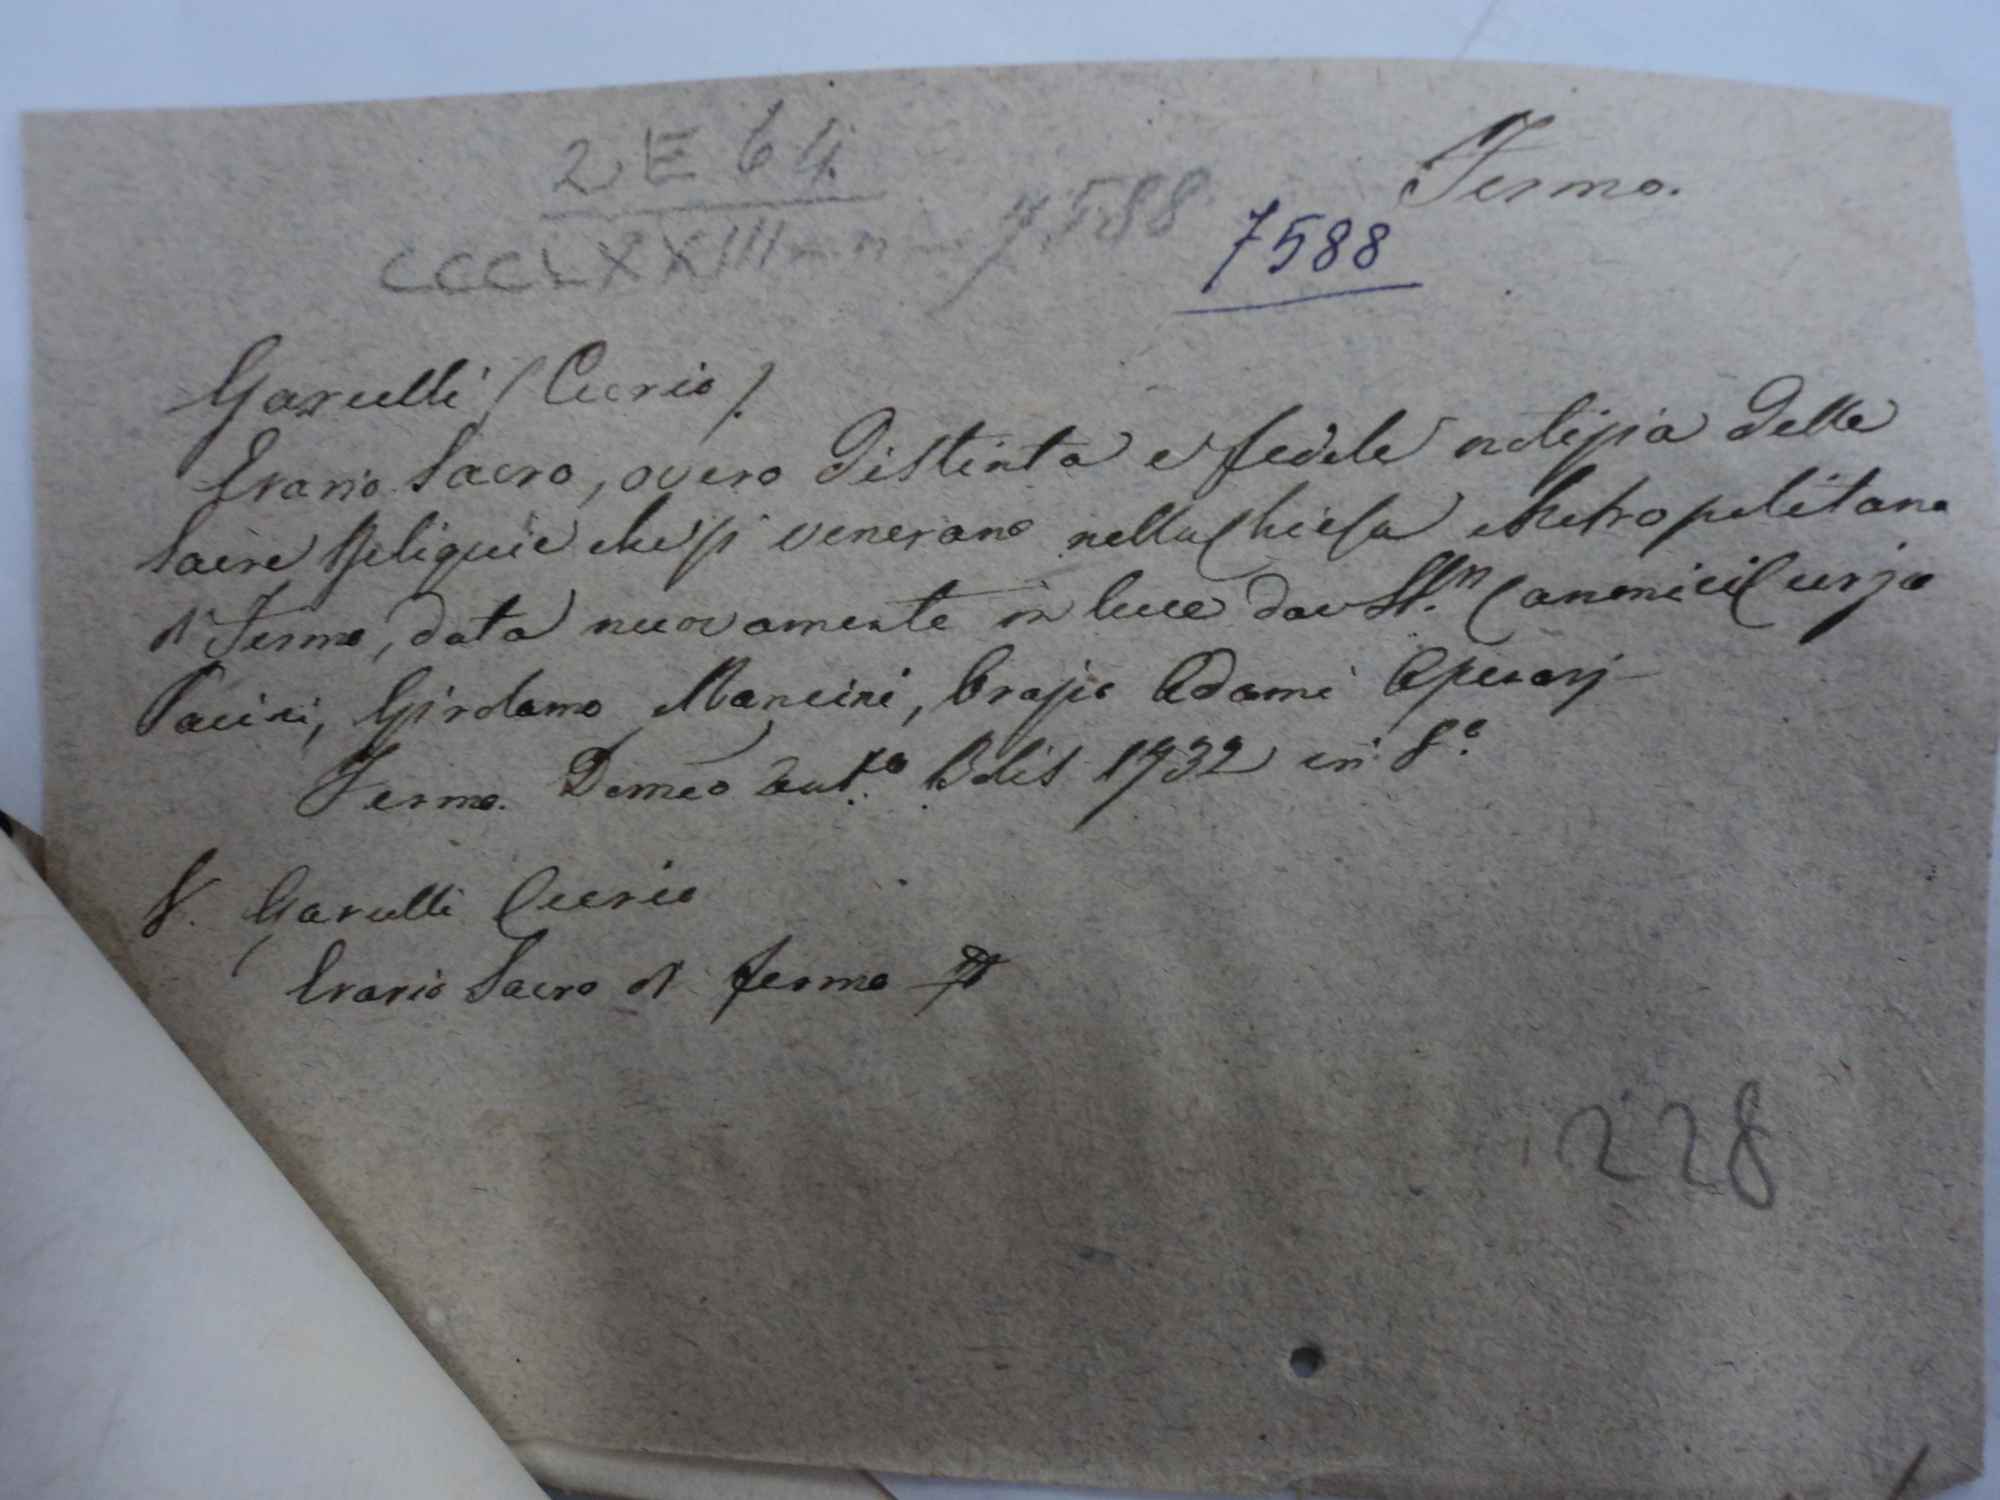 2 E 64.
Fermo.
CCCLXXIII n 7588
7588
Garulli (Curio).
Erario Sacro, overo distinta e fedele notizia delle
Sacre Reliquie che si venerano nella Chiesa Metropolitana
di Fermo, data nuovamente in luce da Canonici Curzio
Pacini, Girolamo Mancini, Orazio Adami
Fermo. 1732 in 8.º
V. Garulli Curio
Erario Sacro di Fermo
228